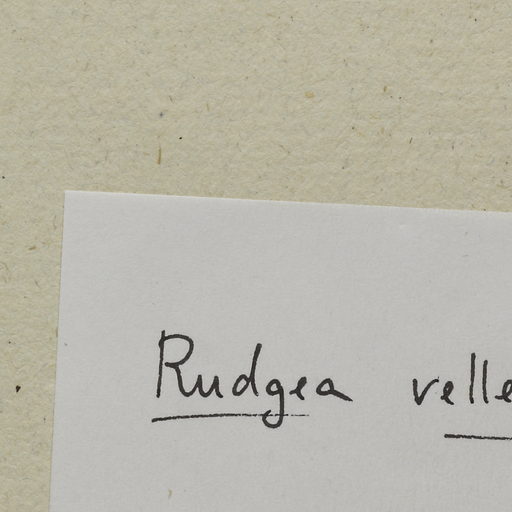 Rudgea velle